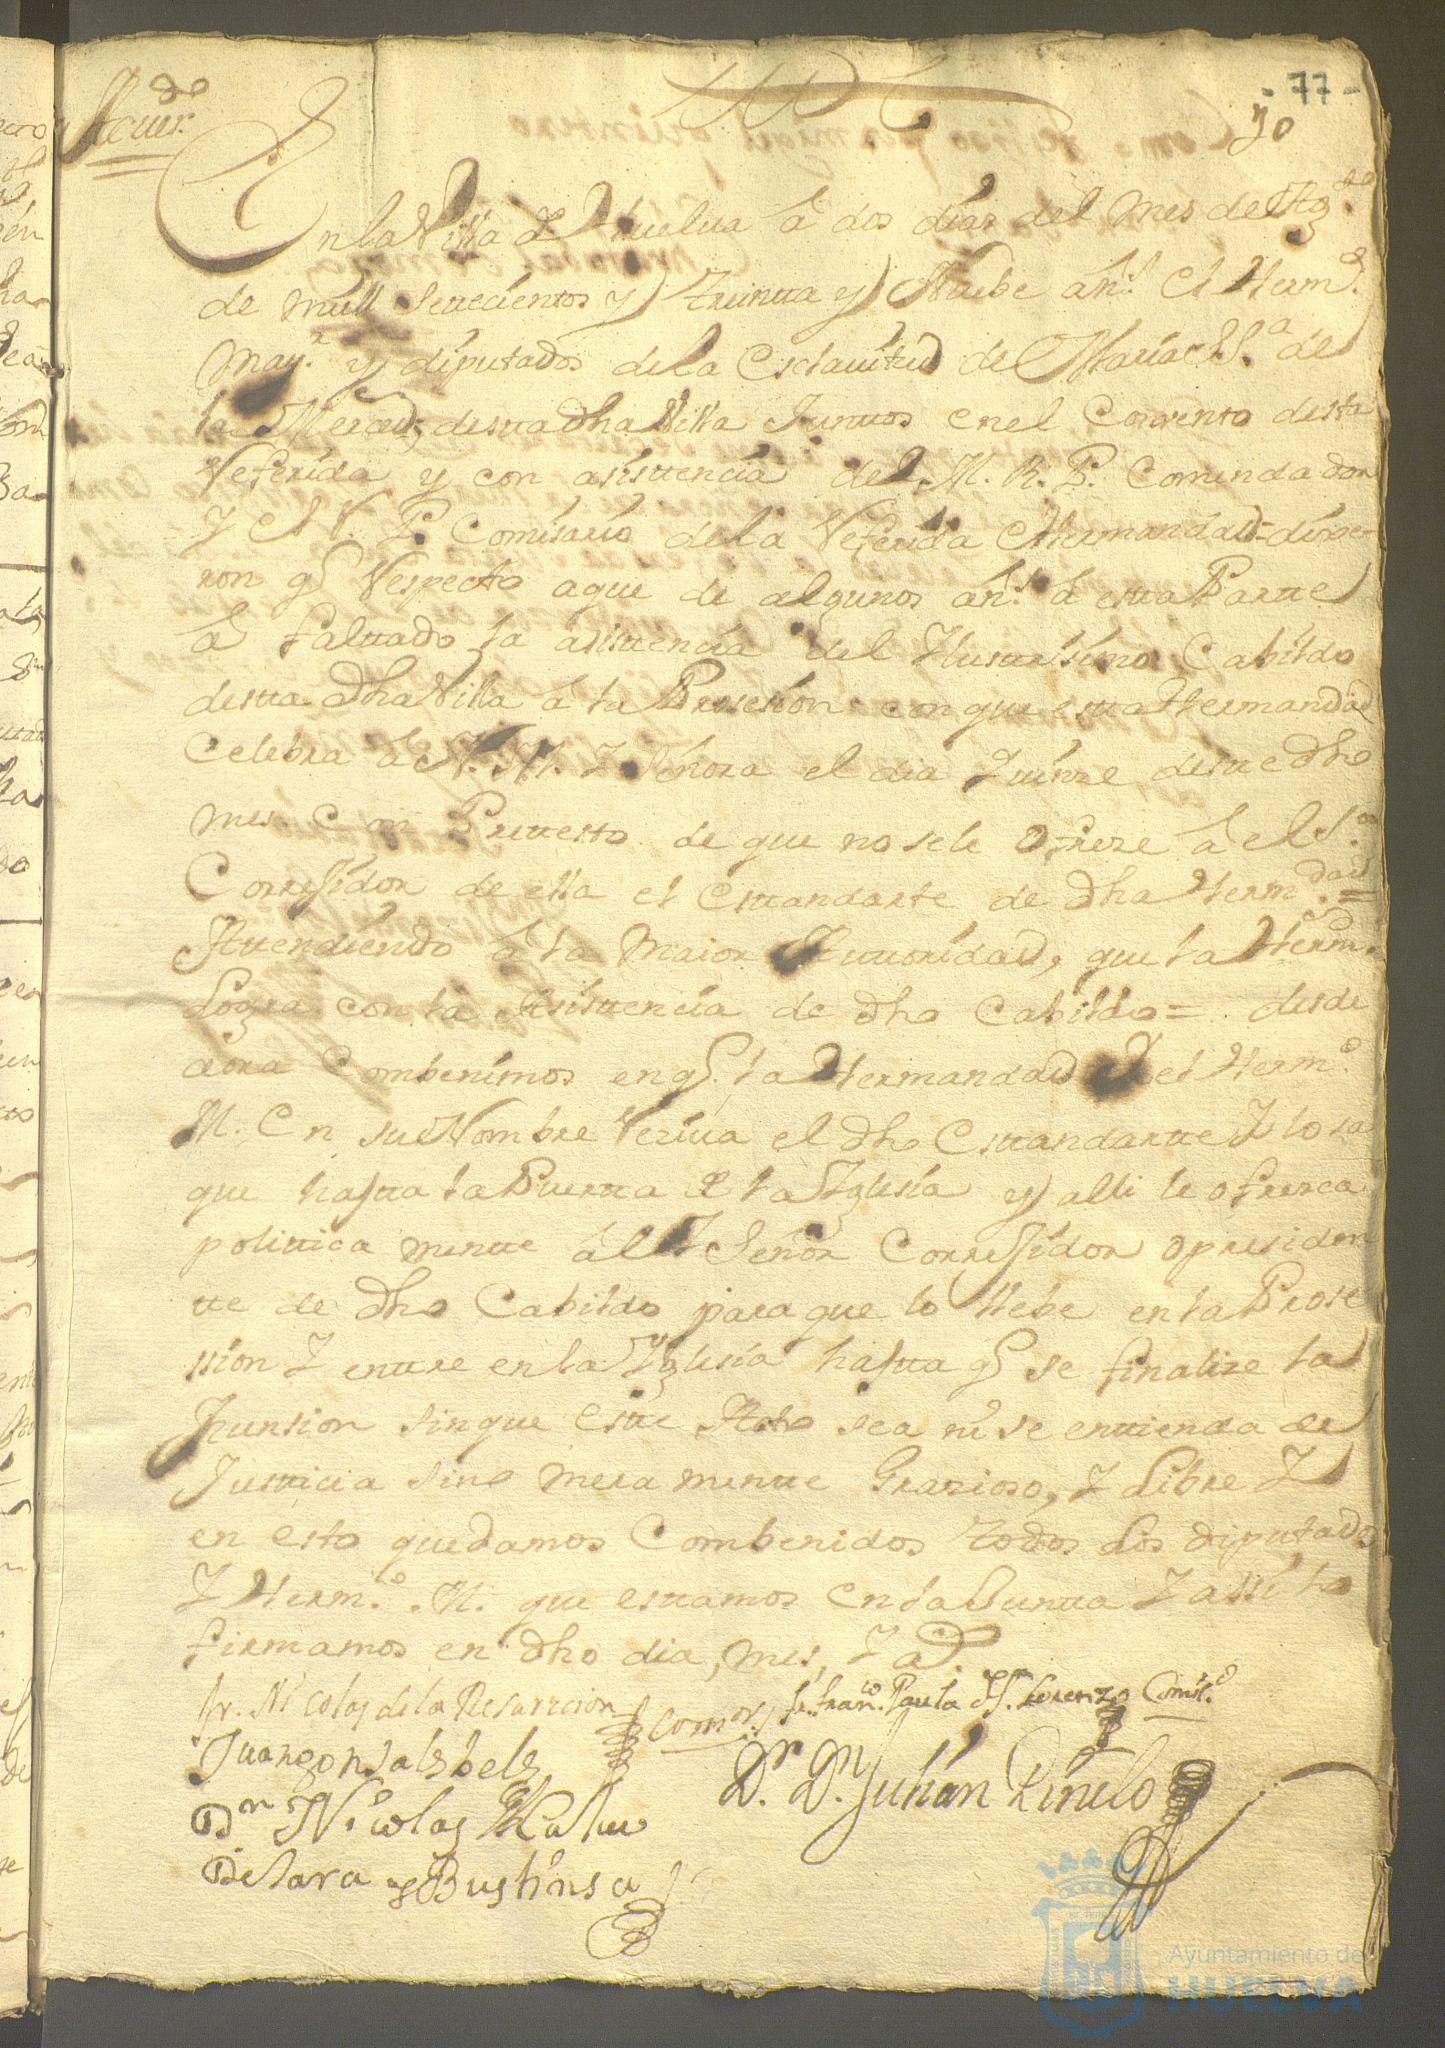 - 77 -
70
Acuer.do
En la Villa de Huelua â dos dias del mes de Ag.to
de mill setecientos y treinta y Nuebe añ.s el Herm.o
may.r y diputados de la Esclauitud de Maria SS.a de
la Merced, desta dha Villa Juntos en el Convento desta
Referida y con asistencia del M. R. P. Comendador
Y el R. P. Comisario de la Referida Hermandad = dixe-
ron q Respecto aque de algunos añ.s â esta Parte
â faltado la asistencia del Ilustrisimo Cabildo
desta dha Villa â la Prosesion con que esta Hermandad
Celebra â N. M. Y Señora el dia quinze deste dho
mes. Con Pretesto de que no sele Ofreze â el S.or
Corregidor de ella el Estandarte de dha Herm.dad =
Attendiendo â la maior Autoridad, que la Herm.d
Logra con la Asistencia de dho Cabildo = desde
aora Combenimos en q. la Hermandad Y el Herm.o
M. En su Nombre Reziua el dho Estandarte Y lo sa
que hasta la Puerta de la Yglesia y alli le ofresca
politica mente âl Señor Corregidor o presiden
te de dho Cabildo para que lo llebe en la Prose
ssion Y entre en la Yglesia hasta q se finalize la
Funsion sinque este Acto sea ni se entienda de
Justicia sino mera mente Grazioso, Y Libre Y
en esto quedamos Combenidos todos Los diputados
Y Herm.o M. que estamos en la Junta Y assi lo
firmamos en dho dia, mes, Y a.
fr. Nicolas de la Resurrecion Com.or fr. fran.co Paula de S. Lorenzo Comis.o
Juan gonsales bels
D.r D.n Julian Pinelo
D.n Nicolas
De lara y Bustinsa
Ayuntamiento de
HUELVA